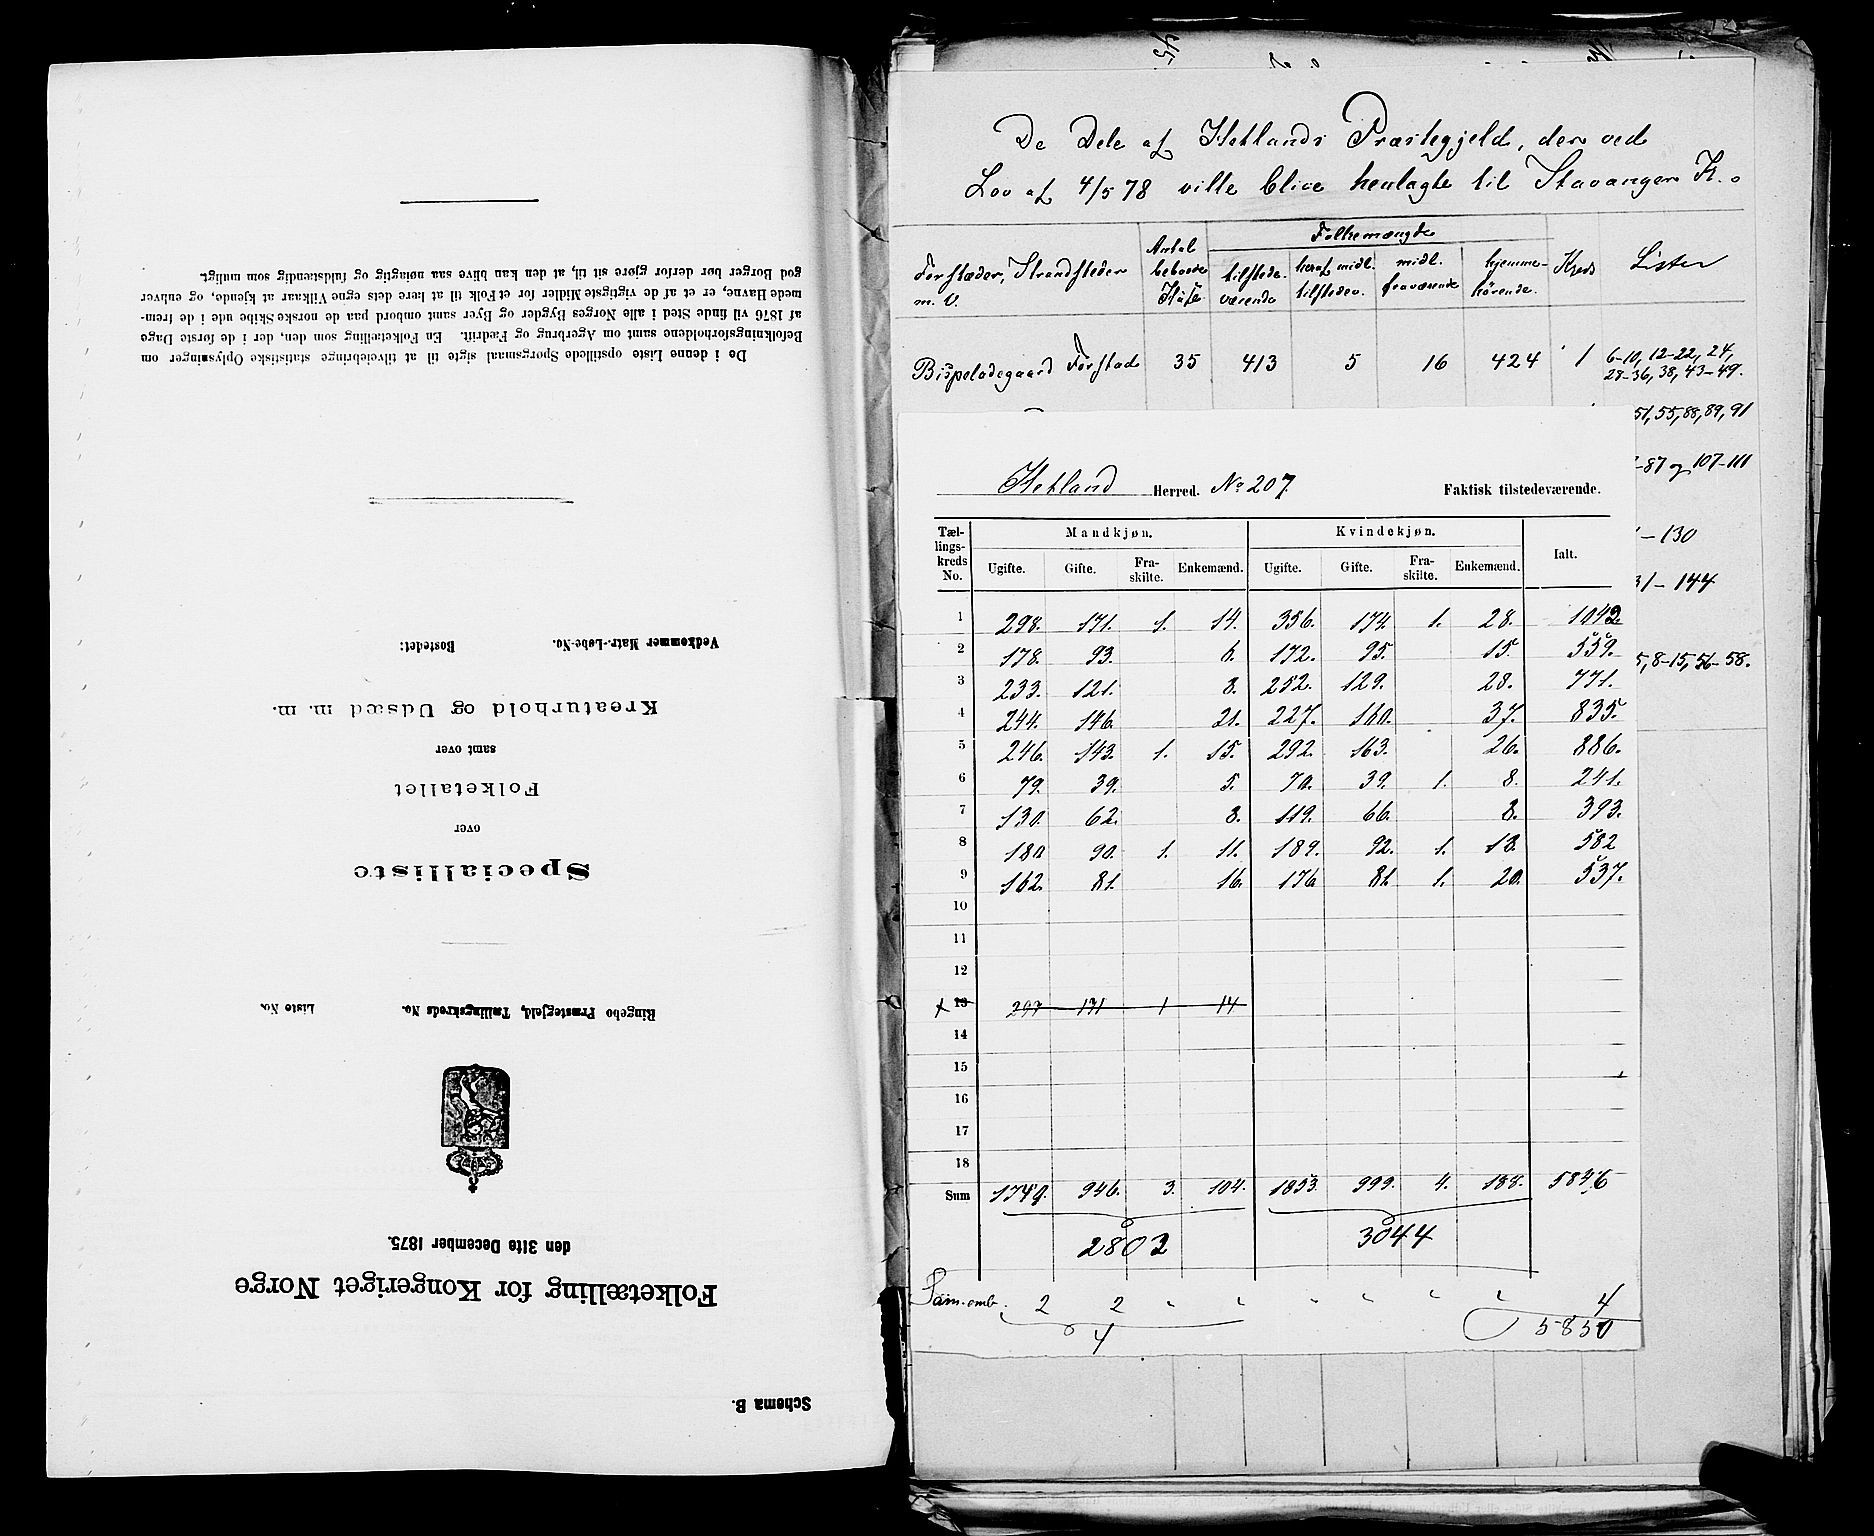 Schema B.
Folketælling for Kongeriget Norge
den 31te December 1875.
Ringebo Præstegjeld, Tællingskreds No. Liste No.
Specialliste
over
Folketallet
samt over
Kreaturhold og Udsæd m. m.
Vedkommer Matr.-Løbe-No. Bostedet:
De i denne Liste opstillede Spørgsmaal sigte til at tilveiebringe statistiske Oplysninger om
Befolkningsforholdene samt om Agerbrug og Fædrift. En Folketælling som den, der i de første Dage
af 1876 vil finde Sted i alle Norges Bygder og Byer samt ombord paa de norske Skibe ude i de frem-
mede Havne, er et af de vigtigste Midler for et Folk til at lære dets egne Vilkaar at kjende, og enhver
god Borger bør derfor gjøre sit til, at den kan blive saa nøiagtig og fuldstændig som muligt.
De Dele af Hetlands Præstegjeld, der ved
Lov af 4/5 78 ville blive henlagte til Stavanger K.
Forstæder, Strandsteder m. V. Antal beboede Huse Folkemængde Kreds Lister
tilstede værende heraf midl. tilstedev. midl. fraværende hjemme-hørende
Bispeladegaard Forstad 35 413 5 16 424 1 6-10, 12-22, 24,
28-36, 38, 43-49.
51, 55, 88, 89, 91
-87 og 107-111
-130
31-144
5, 8-15, 56-58.
Hetland Herred. No 207. Faktisk tilstedeværende.
Tæl-lings-kreds No. Mandkjøn. Kvindekjøn. Ialt.
Ugifte. Gifte. Fra-skilte. Enkemænd. Ugifte. Gifte. Fra-skilte. Enkemænd.
1 298. 171. 1. 14. 356. 174. 1. 28. 1043.
2 178. 93. 6. 172. 95. 15. 559.
3 233. 121. 8. 252. 129. 28. 771.
4 244. 146. 21. 227. 160. 37. 835.
5 246. 143. 1. 15. 292. 163. 26. 886.
6 79. 39. 5. 70. 39. 1. 8. 241.
7 130. 62. 8. 119. 66. 8. 393.
8 180 90. 1. 11. 189. 92. 1. 18. 582
9 162. 81. 16. 176 81. 1. 20. 537.
10
11
12
x 13 297 171 1 14
14
15
16
17
18
Sum 1749. 946. 3. 104. 1853. 999. 4. 188. 5846
2802 3044
Sam. omb. 2 2 " " " " " " 4
4 5850